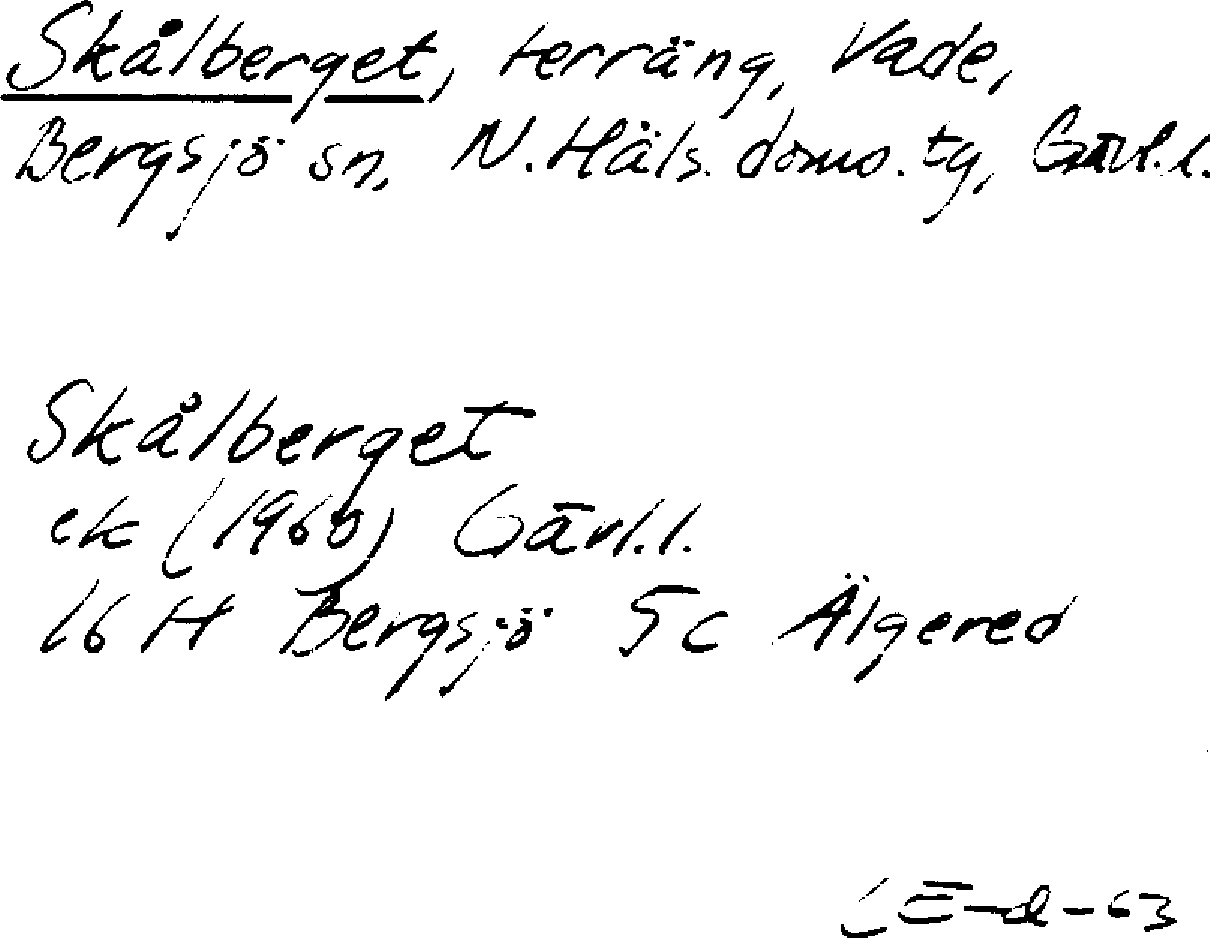 Skålberget, terräng, Vade,
Bergsjö sn, N. Häls. doms. tg, Gävl.l.
Skålberget
ek (1960) Gävl.l.
16 H Bergsjö 5c Älgered